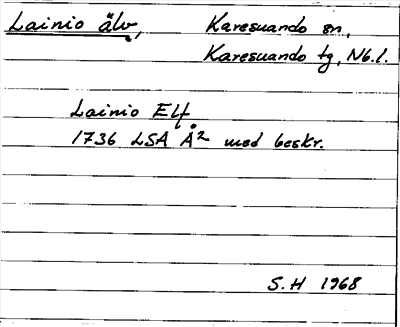 Lainio älv, Karesuando sn,
Karesuando tg, Nb.l.
Lainio Elf
1736 LSA Å2 med beskr.
S.H 1968